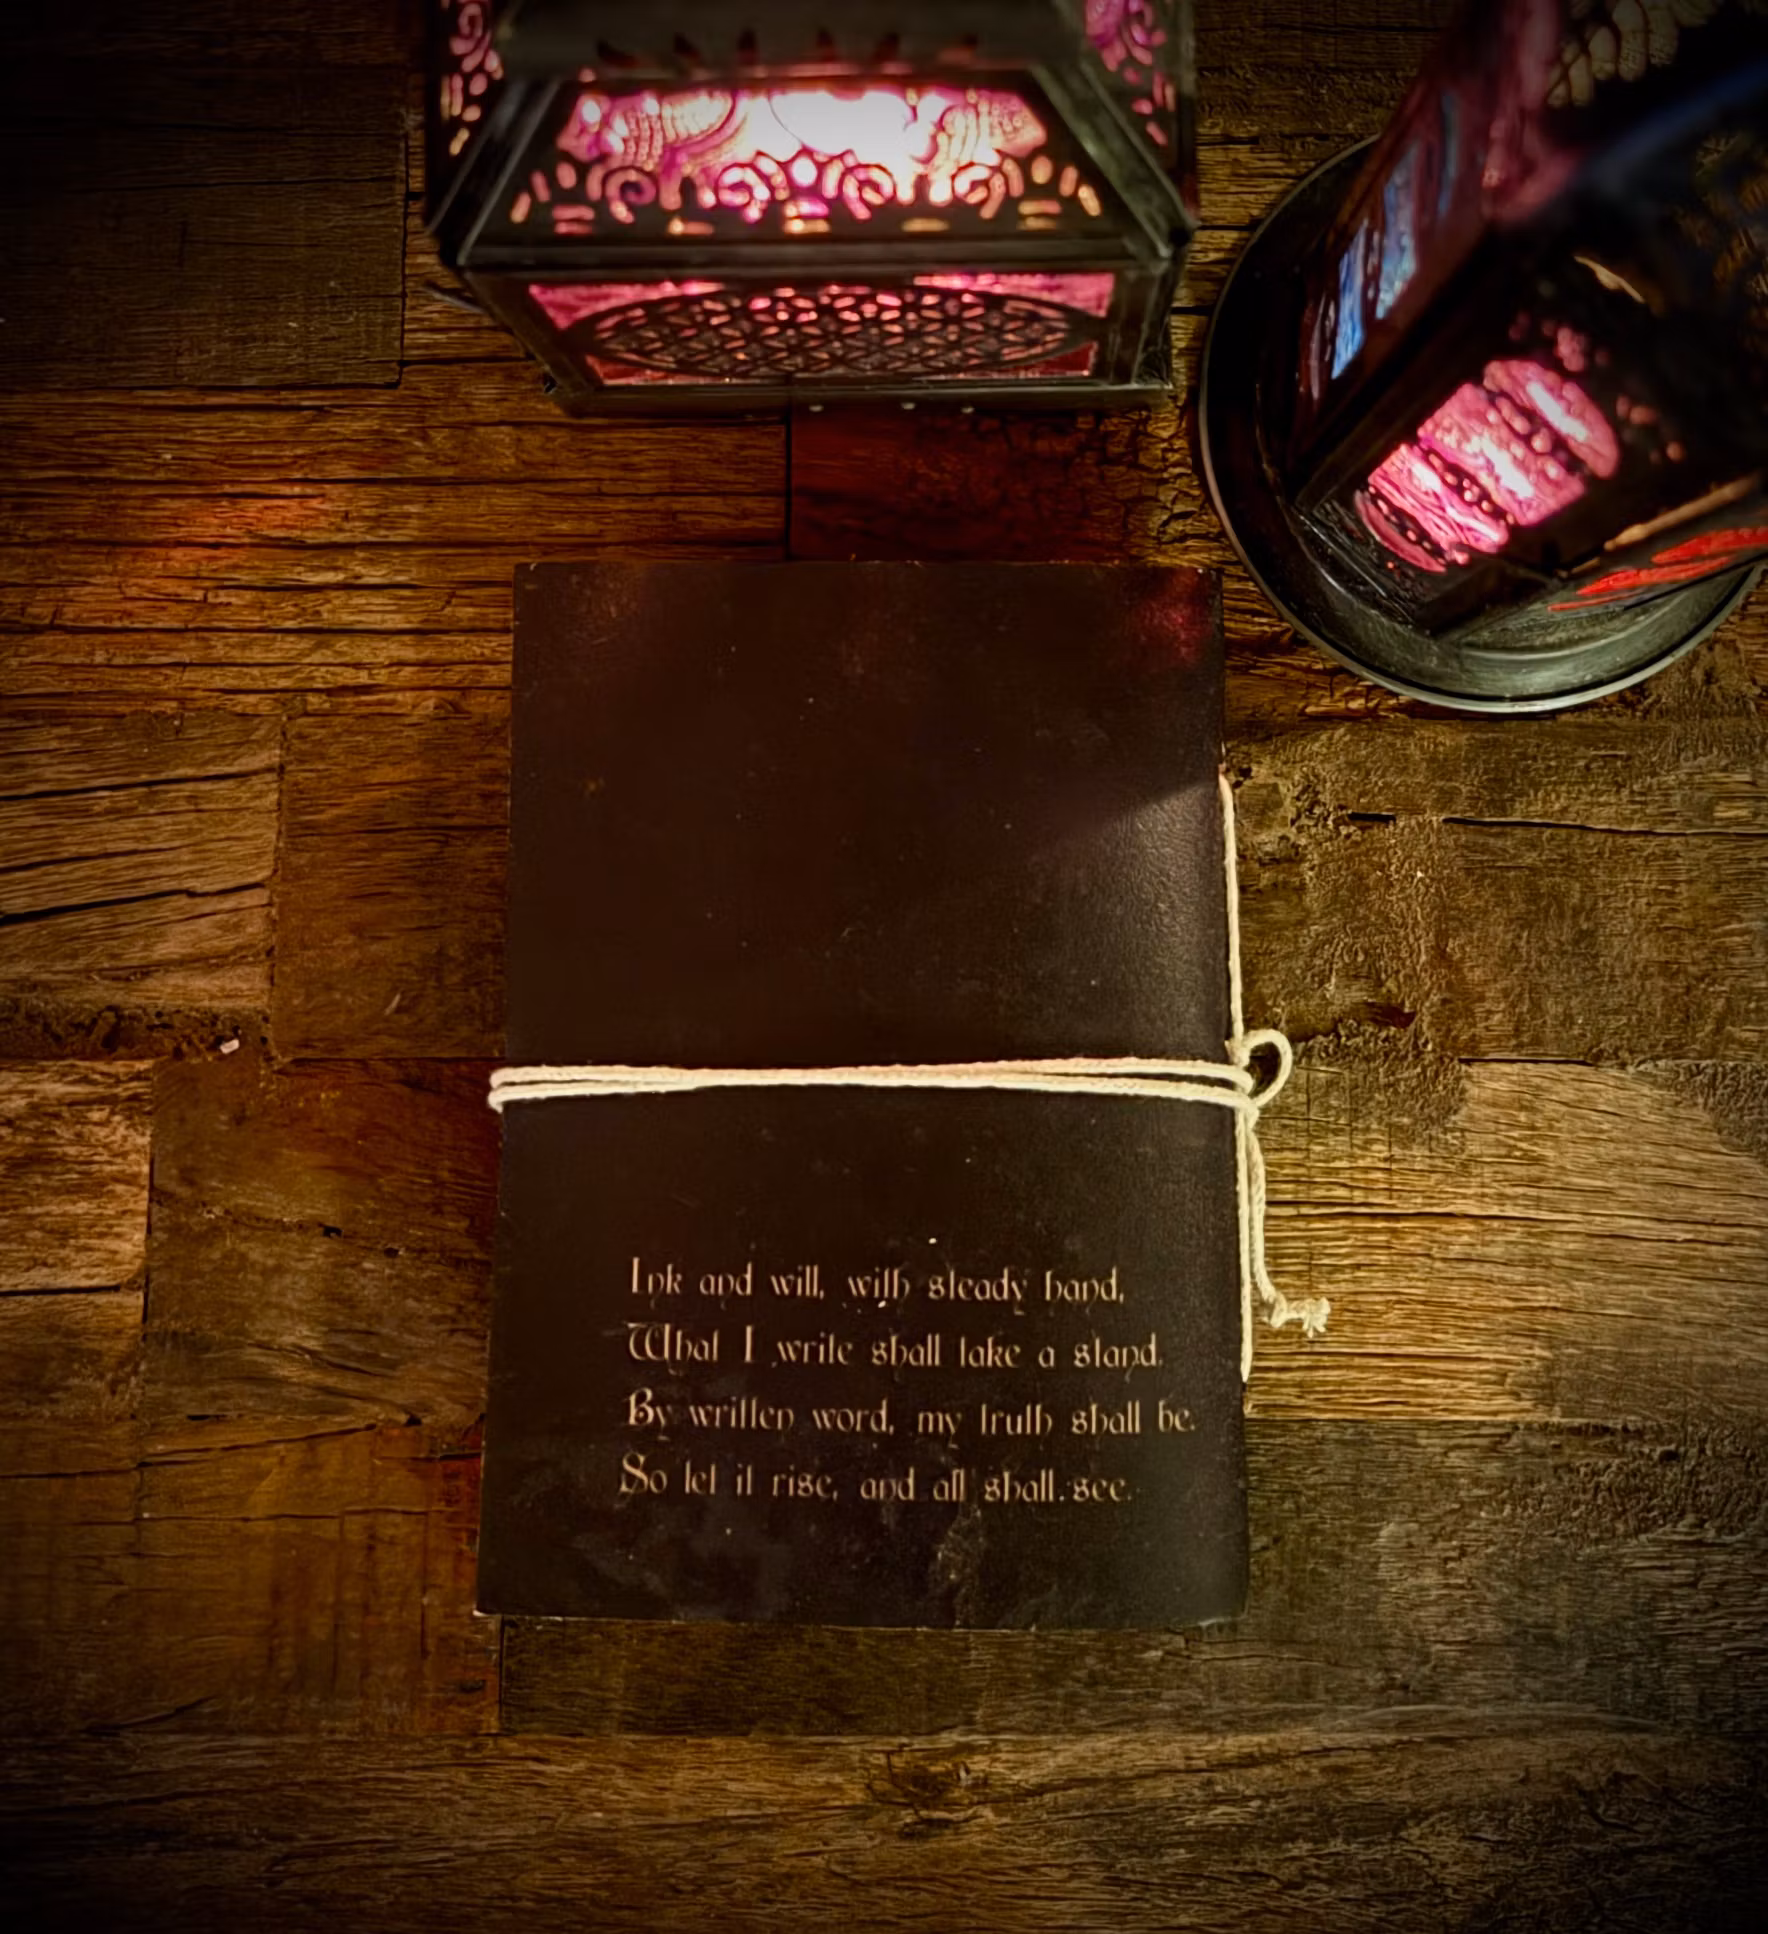 Ink and will, with steady hand,
What I write shall take a stand.
By written word, my truth shall be.
So let it rise, and all shall see.